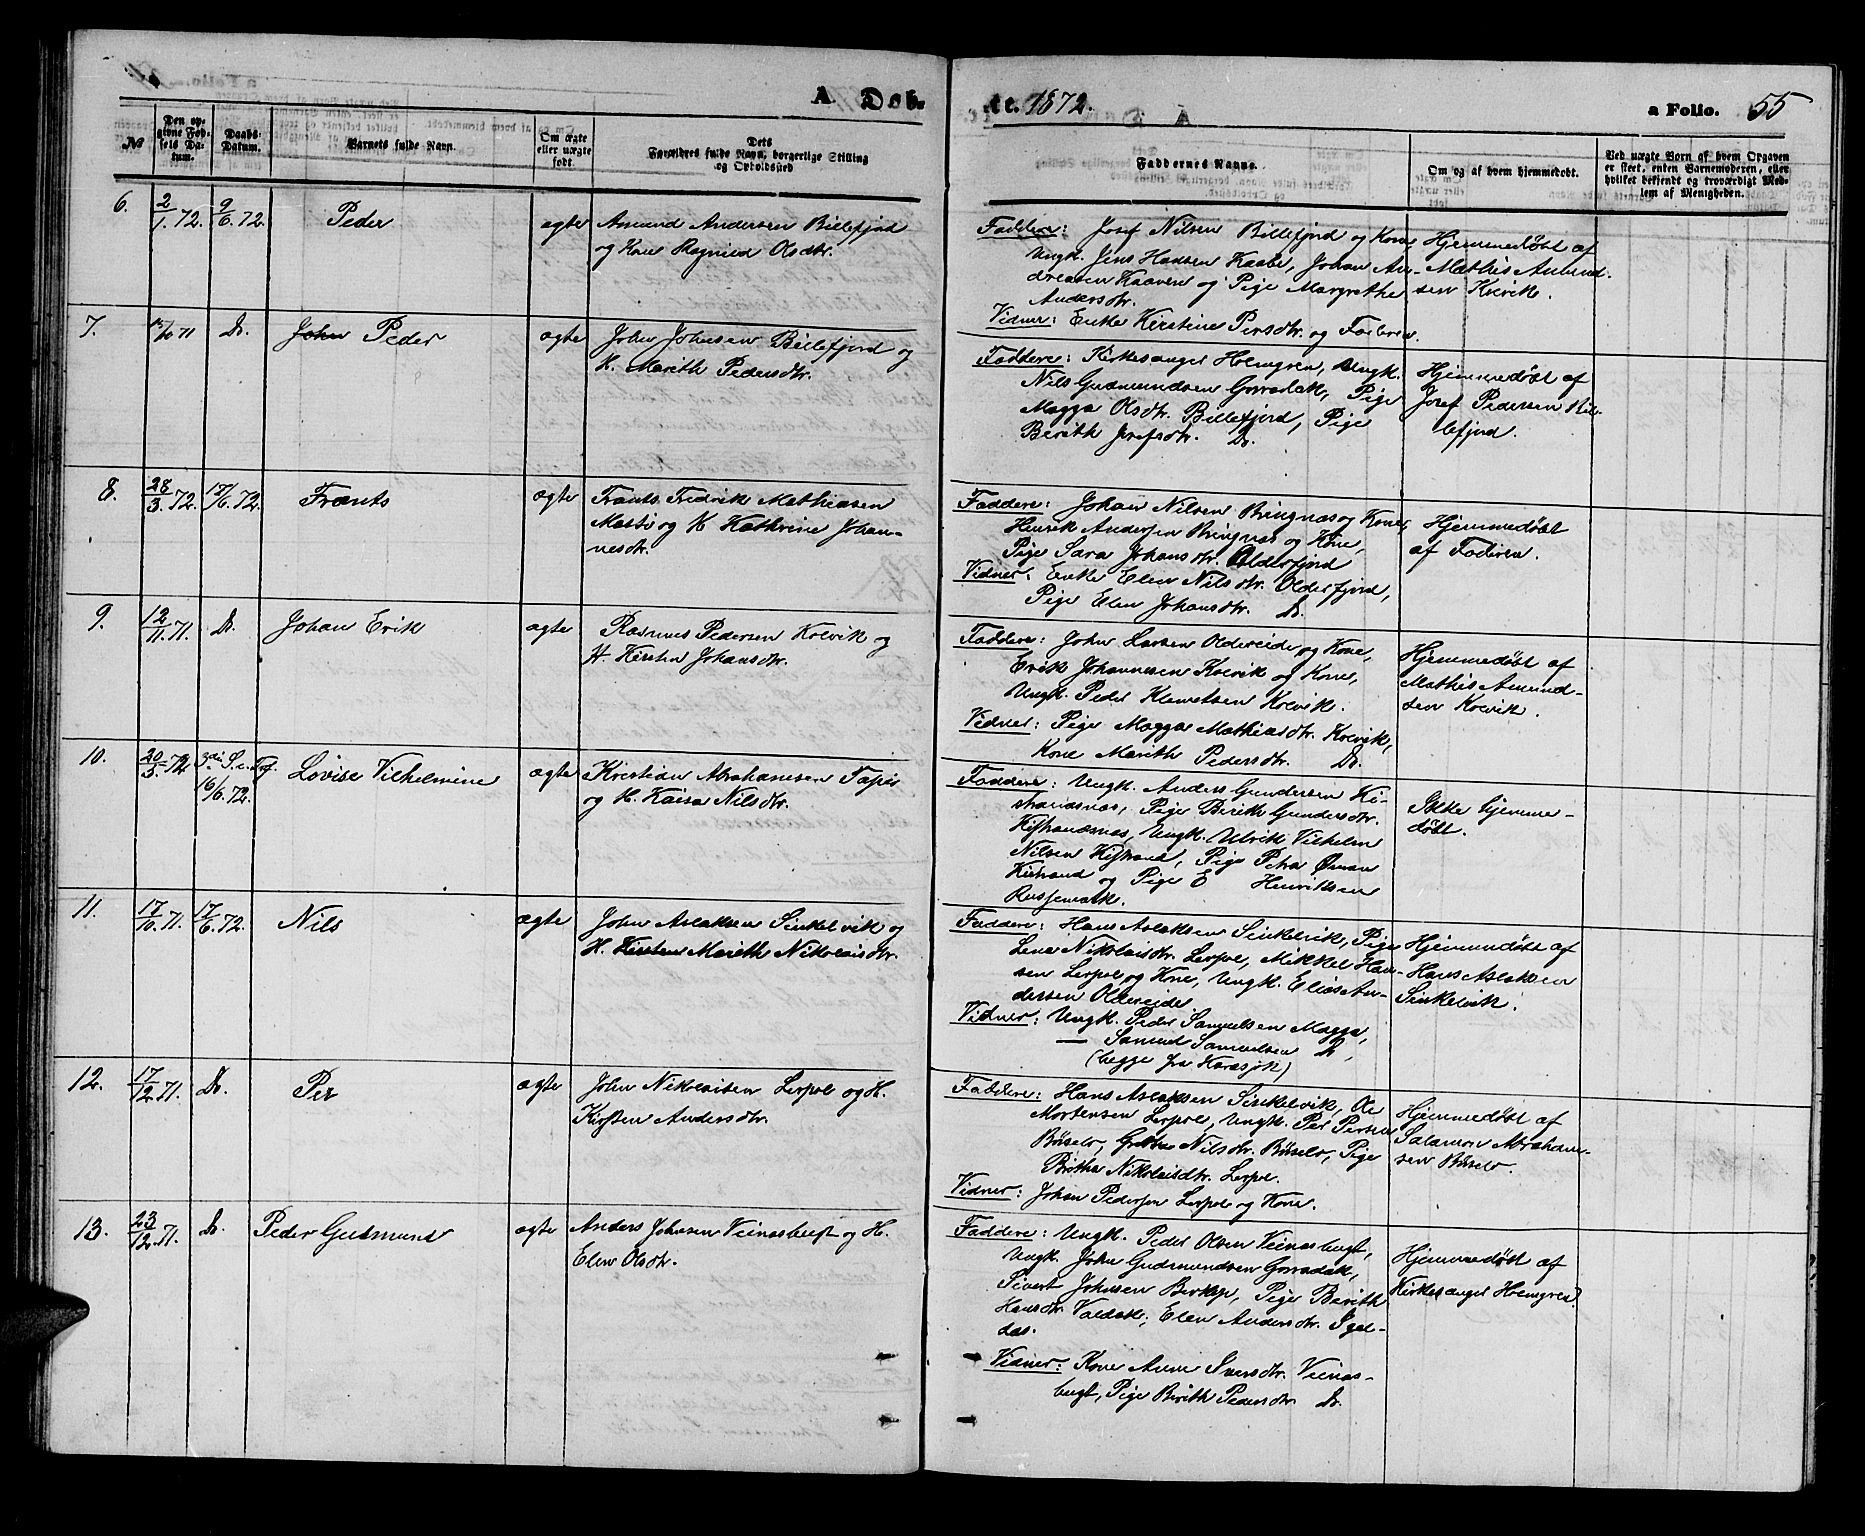 A Døb-
Ao. 1872.
a Folio. 55
№
Den op-
givne Fød-
sels Da-
tum.
Daabs-
Datum.
Barnets fulde Navn.
Om ægte
eller uægte
født.
Dets
Forældres fulde Navn, borgerlige Stilling
og Opholdssted
Faddernes Navne.
Om og af hvem hjemmedøbt.
Ved uægte Børn af hvem Opgaven
er skeet, enten Barnemoderen, eller
hvilket bekjendt og troværdigt Med-
lem af Menigheden.
6.
2/1.72.
9/6.72.
Peder
ægte
Amund Andersen Billefjord
og Kone Ragnild Olsdtr.
Faddere: Josef Nilsen Billefjord og Kone,
Ungk. Jens Hansen Kaabe, Johan An-
dreasen Kaaven og Pige Margrethe
Andersdtr.
Vidner: Enke Kirstine Persdtr. og Faderen.
Hjemmedøbt af
Mathis Amund-
sen Kolvik.
7.
/10 71
Do.
John Peder
ægte
John Johnsen Billefjord og
H. Marith Pedersdtr.
Faddere: Kirkesanger Holmgren, Ungk.
Nils Gudmundsen Goradak, Pige
Magga Olsdtr. Billefjord, Pige
Berith Josefsdtr. Do.
Hjemmedøbt af
Josef Pedersen Bil-
lefjord.
8.
28/3.72.
12/6.72.
Frants
ægte
Frants Fredrik Mathiasen
og K Kathrine Johan-
nesdtr.
Faddere: Johan Nilsen Bringnæs og Kone,
Henrik Andersen Bringnæs og Kone,
Pige Sara Johansdtr. Olderfjord
Vidner: Enke Elen Nilsdtr. Olderfjord,
Pige Elen Johansdtr. Do.
Hjemmedøbt
af Faderen.
9.
12/11.71.
Do.
Johan Erik
ægte
Rasmus Pedersen Kolvik og
H. Kirsten Johansdtr.
Faddere: John Larsen Oldereide og Kone,
Erik Johannesen Kolvik og Kone,
Ungk. Peder Klemetsen Kolvik.
Vidner: Pige Magga Mathiasdtr. Kolvik,
Kone Marith Pedersdtr. Do.
Hjemmedøbt af
Mathis Amund-
sen Kolvik.
10.
20/3.72
3die S. e. Tref.
16/6.72.
Lovise Vilhelmine
ægte
Kristian Abrahamsen
og H. Kaisa Nilsdtr.
Faddere: Ungk. Anders Gundersen Ki-
strandsnæs, Pige Berith Gundersdtr.
Kistrandsnæs, Ungk. Ulrik Vilhelm
Nilsen Kistrand, Pige Petra
Kistrand og Pige E Henriksen
Russemark.
Ikke hjemme-
døbt.
11.
17/10.71.
17/6.72.
Nils
ægte
John Aslaksen Sinkelvik og
H. Kirsten Marith Nikolaisdtr.
Faddere: Hans Aslaksen Sinkelvik, Pige
Lena Nikolaisdtr. Lerpol, Mikkel Han-
sen Lerpol og Kone, Ungk. Elias An-
dersen Oldereide
Vidner: Ungk. Peder Samuelsen Magga,
— Samuel Samuelsen Do,
(begge fra Karasjok)
Hjemmedøbt af
Hans Aslaksen
Sinkelvik.
12.
17/12.71.
Do.
Per
ægte
John Nikolaisen Lerpol og H.
Kirsten Andersdtr.
Faddere: Hans Aslaksen Sinkelvik, Ole
Mortensen Lerpol, Ungk. Per Persen
Børselv, Nilsdtr. Børselv, Pige
Nikolaisdtr. Lerpol.
Vidner: Johan Pedersen Lerpol og Kone.
Hjemmedøbt af
Salamon Abraham-
sen Børselv.
13.
23/12.71.
Do.
Peder Gudmund
ægte
Anders Johnsen Veinæsbugt og H.
Elen Olsdtr.
Faddere: Ungk. Peder Olsen Veinæsbugt,
Ungk. John Gudmundsen Goradak,
Sivert Johnsen , Pige Berith
Hansdtr. Valdak, Elen Andersdtr. Igel-
das.
Vidner: Kone Anne Iversdtr. Veinæs-
bugt, Pige Berith Pedersdtr. Do.
Hjemmedøbt af
Kirkesanger Holmgren.